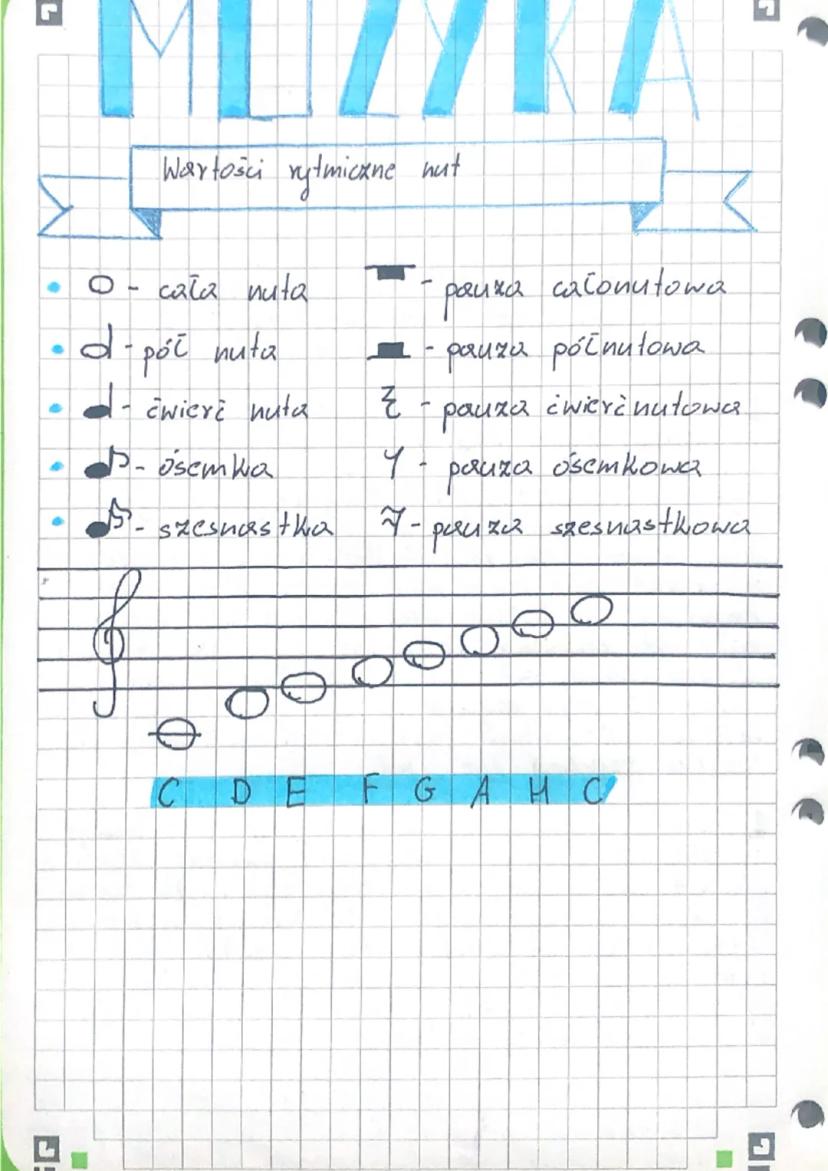 MUZYKA
Wartości rytmiczne nut
- cała nuta - pauza całonutowa
- pół nuta - pauza półnutowa
- ćwierć nuta - pauza ćwierćnutowa
- ósemka - pauza ósemkowa
- szesnastka - pauza szesnastkowa
C D E F G A H C